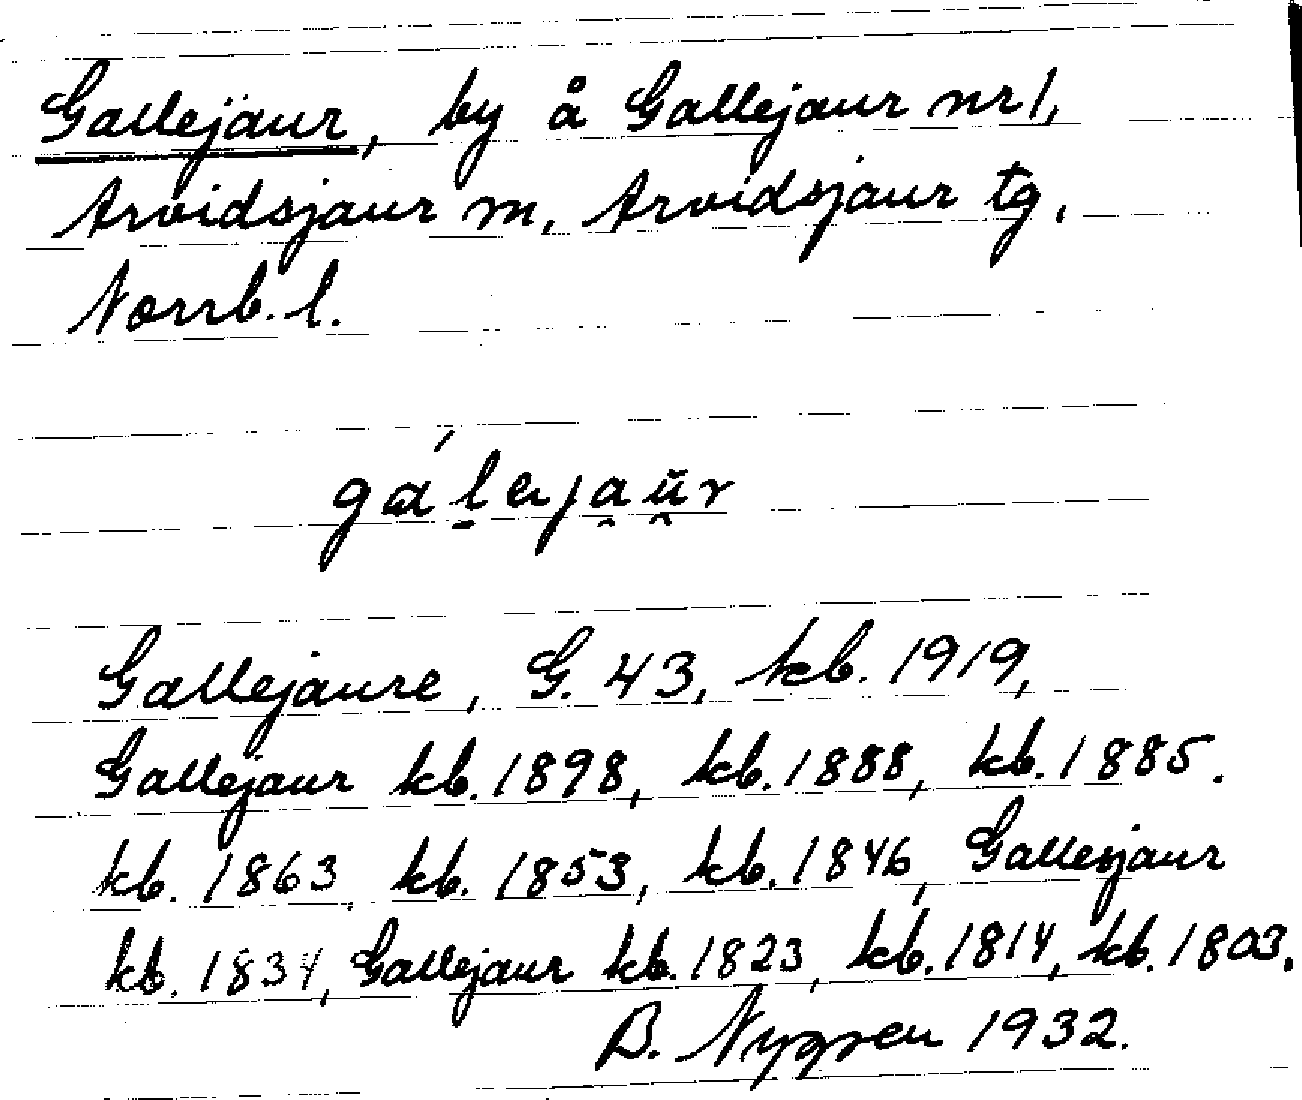 Gallejaur, by å Gallejaur nr 1,
Arvidsjaur sn, Arvidsjaur tg,
Norrb. l.
gálejau̯r
Gallejaure, G. 43, kb. 1919,
Gallejaur kb. 1898, kb. 1888, kb. 1885.
kb. 1863, kb. 1853, kb. 1846, Gallesjaur
kb. 1834, Gallejaur kb. 1823, kb. 1814, kb. 1803.
B. Nygren 1932.